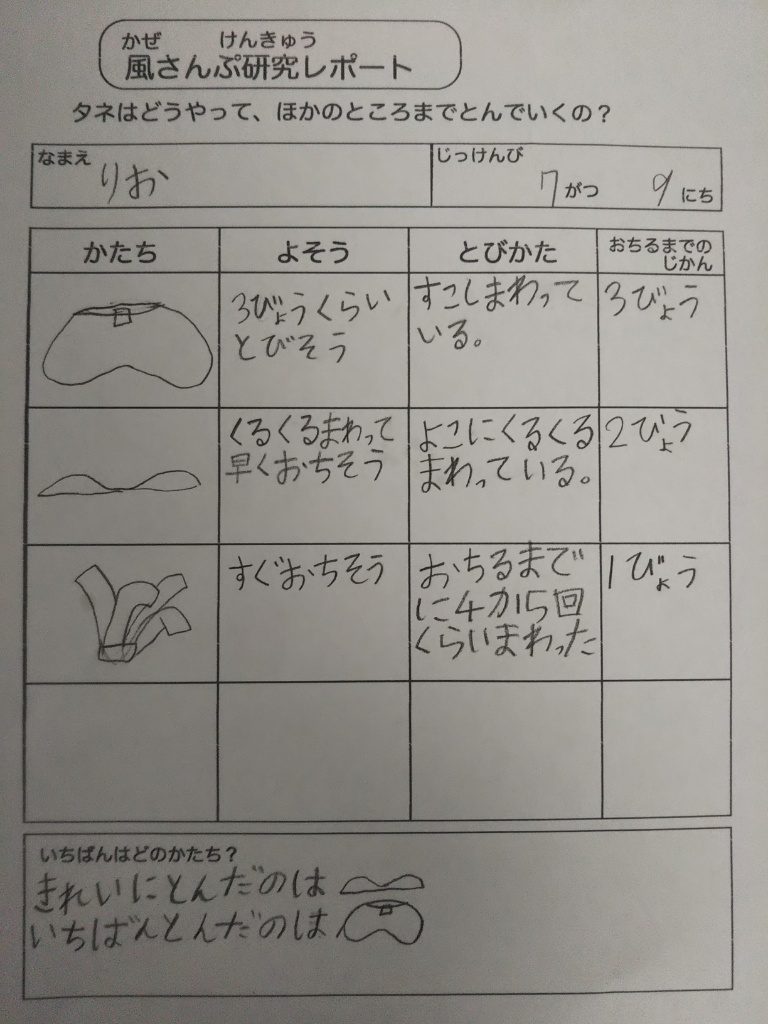 かぜ けんきゅう
風さんぷ研究レポート
タネはどうやって、ほかのところまでとんでいくの？
なまえ
りお
じっけんび
7がつ 9にち
かたち
よそう
とびかた
おちるまでの
じかん
3びょうくらい
とびそう
すこしまわって
いる。
3びょう
くるくるまわって
早くおちそう
よこにくるくる
まわっている。
2びょう
すぐおちそう
おちるまで
に4か15回
くらいまわった
1びょう
いちばんはどのかたち？
きれいにとんだのは
いちばんとんだのは